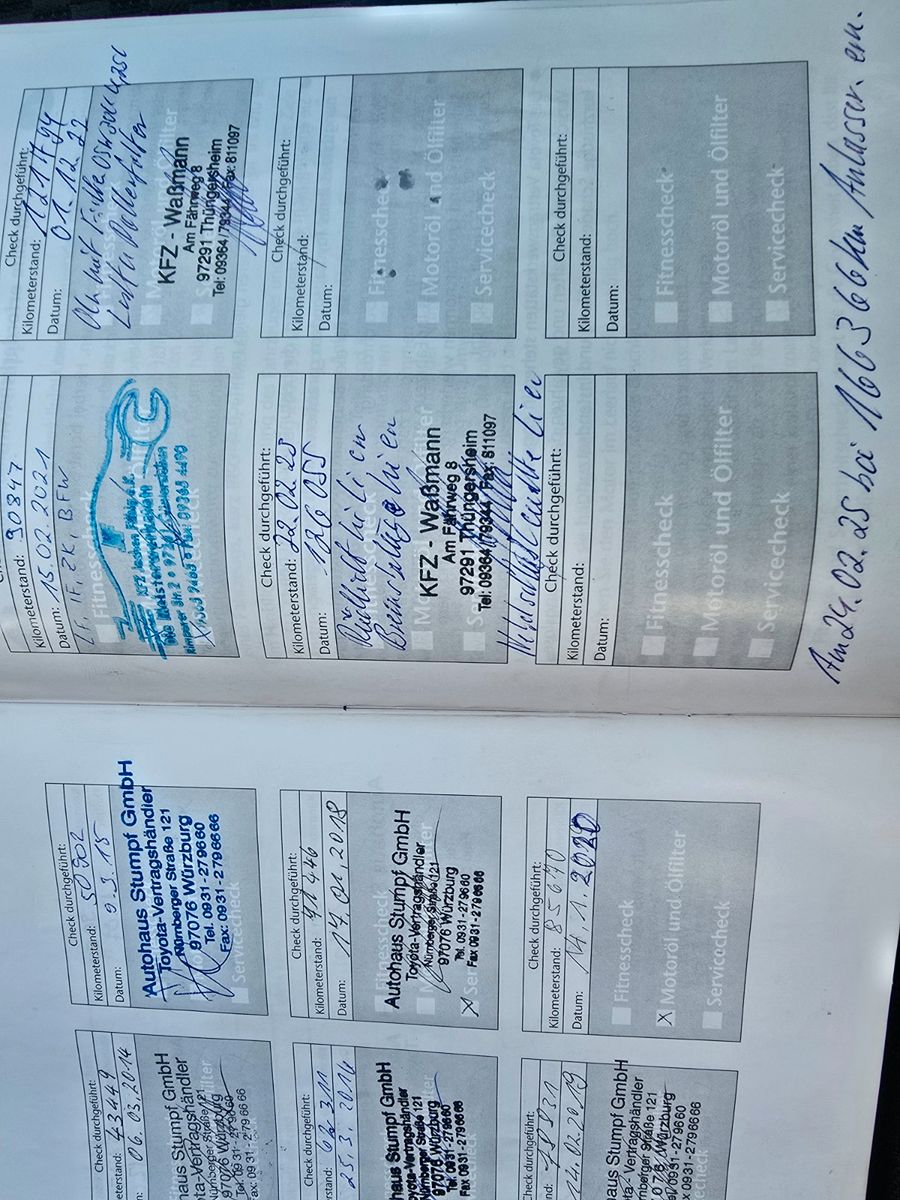 Check durchgeführt:
Kilometerstand: 43449
Datum: 06.03.2014
Autohaus Stumpf GmbH
Toyota-Vertragshändler
Nürnberger Straße 121
97076 Würzburg
Tel. 0931-279660
Fax: 0931-2796666
Check durchgeführt:
Kilometerstand: 50902
Datum: 9.3.15
Autohaus Stumpf GmbH
Toyota-Vertragshändler
Nürnberger Straße 121
97076 Würzburg
Tel. 0931-279660
Fax: 0931-2796666
Servicecheck
Check durchgeführt:
25.3.2014
Autohaus Stumpf GmbH
Toyota-Vertragshändler
Nürnberger Straße 121
97076 Würzburg
Tel. 0931-279660
Fax 0931-2796666
Check durchgeführt:
Kilometerstand: 71446
Datum: 17.01.2018
Fitnesscheck
Autohaus Stumpf GmbH
Toyota-Vertragshändler
Nürnberger Straße 121
97076 Würzburg
Tel. 0931-279660
Fax 0931-2796666
X
Check durchgeführt:
14.02.2019
Autohaus Stumpf GmbH
Toyota-Vertragshändler
Nürnberger Straße 121
97076 Würzburg
Tel. 0931-279660
Fax 0931-2796666
Check durchgeführt:
Kilometerstand: 85670
Datum: 14.1.2020
Fitnesscheck
X Motoröl und Ölfilter
Servicecheck
Kilometerstand: 90847
Datum: 15.02.2021
LF, IF, ZK, BFW
Fitnesscheck
Die Meisterwerkstatt
Check durchgeführt:
Kilometerstand: 121794
Datum: 01.12.22
Ölfilter
KFZ - Waßmann
Am Fährweg 8
97291 Thüngersheim
Tel: 09364/79344 Fax: 811097
Check durchgeführt:
Kilometerstand: 22.02.23
Datum: 126055
KFZ - Waßmann
Am Fährweg 8
97291 Thüngersheim
Tel: 09364/79344 Fax: 811097
Check durchgeführt:
Kilometerstand:
Datum:
Fitnesscheck
Motoröl und Ölfilter
Servicecheck
Check durchgeführt:
Kilometerstand:
Datum:
Fitnesscheck
Motoröl und Ölfilter
Servicecheck
Check durchgeführt:
Kilometerstand:
Datum:
Fitnesscheck
Motoröl und Ölfilter
Servicecheck
Am 24.02.25 bei 166366 km Anlasser ern.